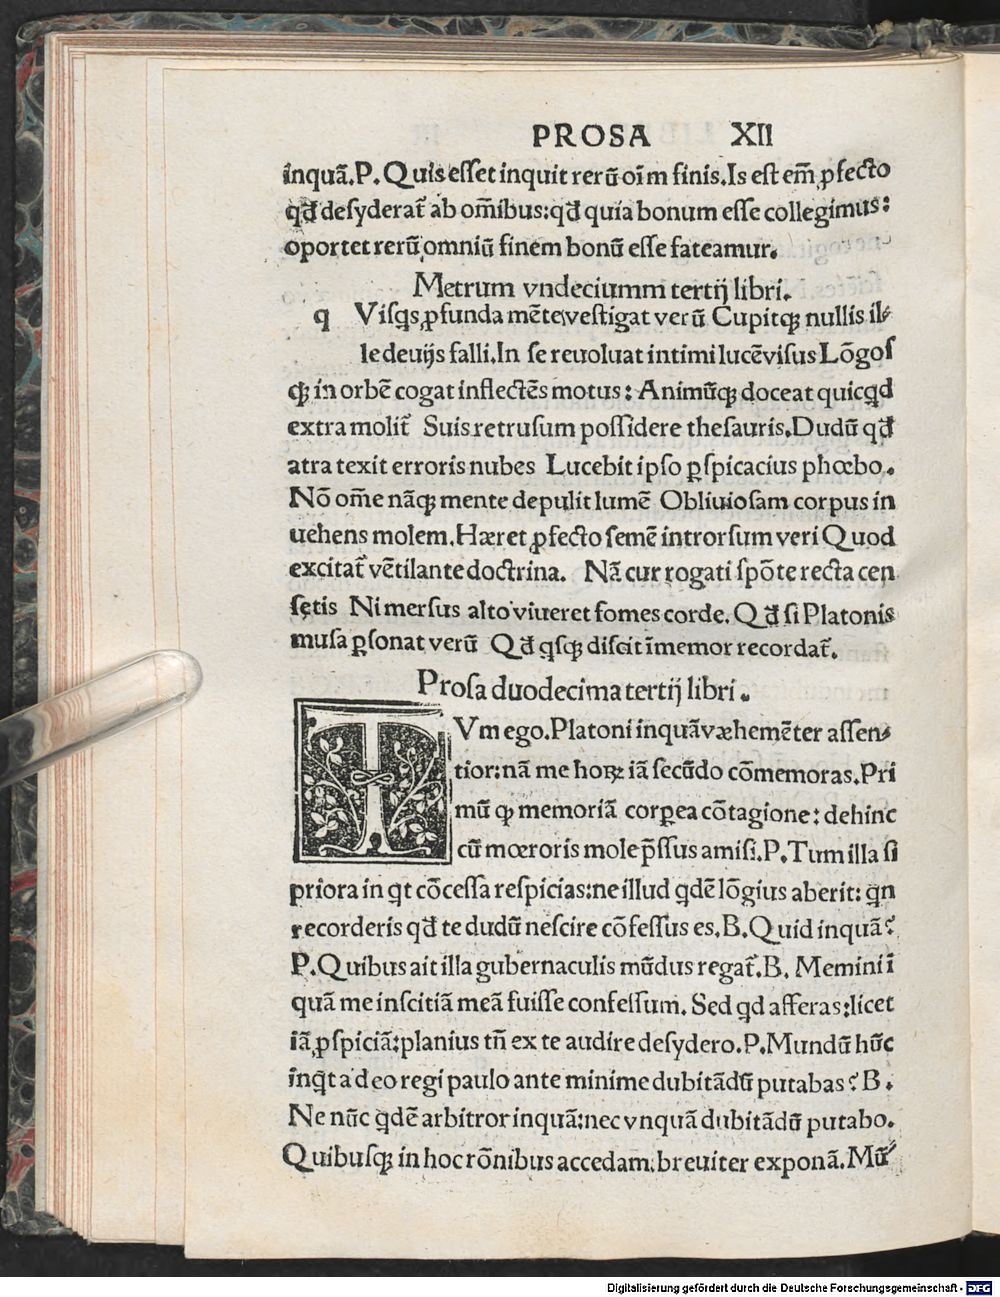 PROSA XII
inquã.P.Quis esſet inquit rerũ oĩm finis.Is est em̃ ꝓfecto
qđ deſyderat᷑ ab om̃ibus:qđ quia bonum eſſe collegimus:
oportet rerũ omniũ finem bonũ eſſe fateamur.
Metrum vndeciumm tertij libri.
q Viſq̃s ꝓfunda mẽte veſtigat verũ Cupitqꝫ nullis il⸗
le deuijs falli.In ſe reuoluat intimi lucẽ viſus Lõgoſ
qꝫ in orbẽ cogat inflectẽs motus: Animũqꝫ doceat quicq̃d
extra molit᷑ Suis retruſum poſſidere theſauris.Dudũ qđ
atra texit erroris nubes Lucebit ipſo ꝑſpicacius phœbo.
Nõ om̃e nãqꝫ mente depulit lumẽ Obliuioſam corpus in
uehens molem.Hæret ꝓfecto ſemẽ introrſum veri Quod
excitat᷑ vẽtilante doctrina. Nã cur rogati ſpõte recta cen
ſętis Ni merſus alto viueret fomes corde. Qđ ſi Platonis
muſa ꝑſonat verũ Qđ q̃ſqꝫ diſcit ĩmemor recordat᷑.
Proſa duodecima tertij libri.
TVm ego.Platoni inquã væhemẽter aſſen⸗
tior:nã me hoꝝ iã ſecũdo cõmemoras.Pri
mũ ꝙ memoriã corꝑea cõtagione: dehinc
cũ mœroris mole p̃ſſus amiſi.P.Tum illa ſi
priora in q̃t cõceſſa reſpicias:ne illud q̃dẽ lõgius aberit: q̃n
recorderis qđ te dudũ neſcire cõfeſſus es.B.Quid inquã?
P.Quibus ait illa gubernaculis mũdus regat᷑.B. Memini ĩ
quã me inſcitiã meã fuiſſe confeſſum. Sed q̃d afferas:licet
iã ꝓſpiciã:planius tñ ex te audire deſydero.P.Mundũ hũc
inq̃t adeo regi paulo ante minime dubitãdũ putabas? B.
Ne nũc q̃dẽ arbitror inquã:nec vnquã dubitãdũ putabo.
Quibuſqꝫ in hoc rõnibus accedam.breuiter exponã.Mũ⸗
Digitalisierung gefördert durch die Deutsche Forschungsgemeinschaft - DFG